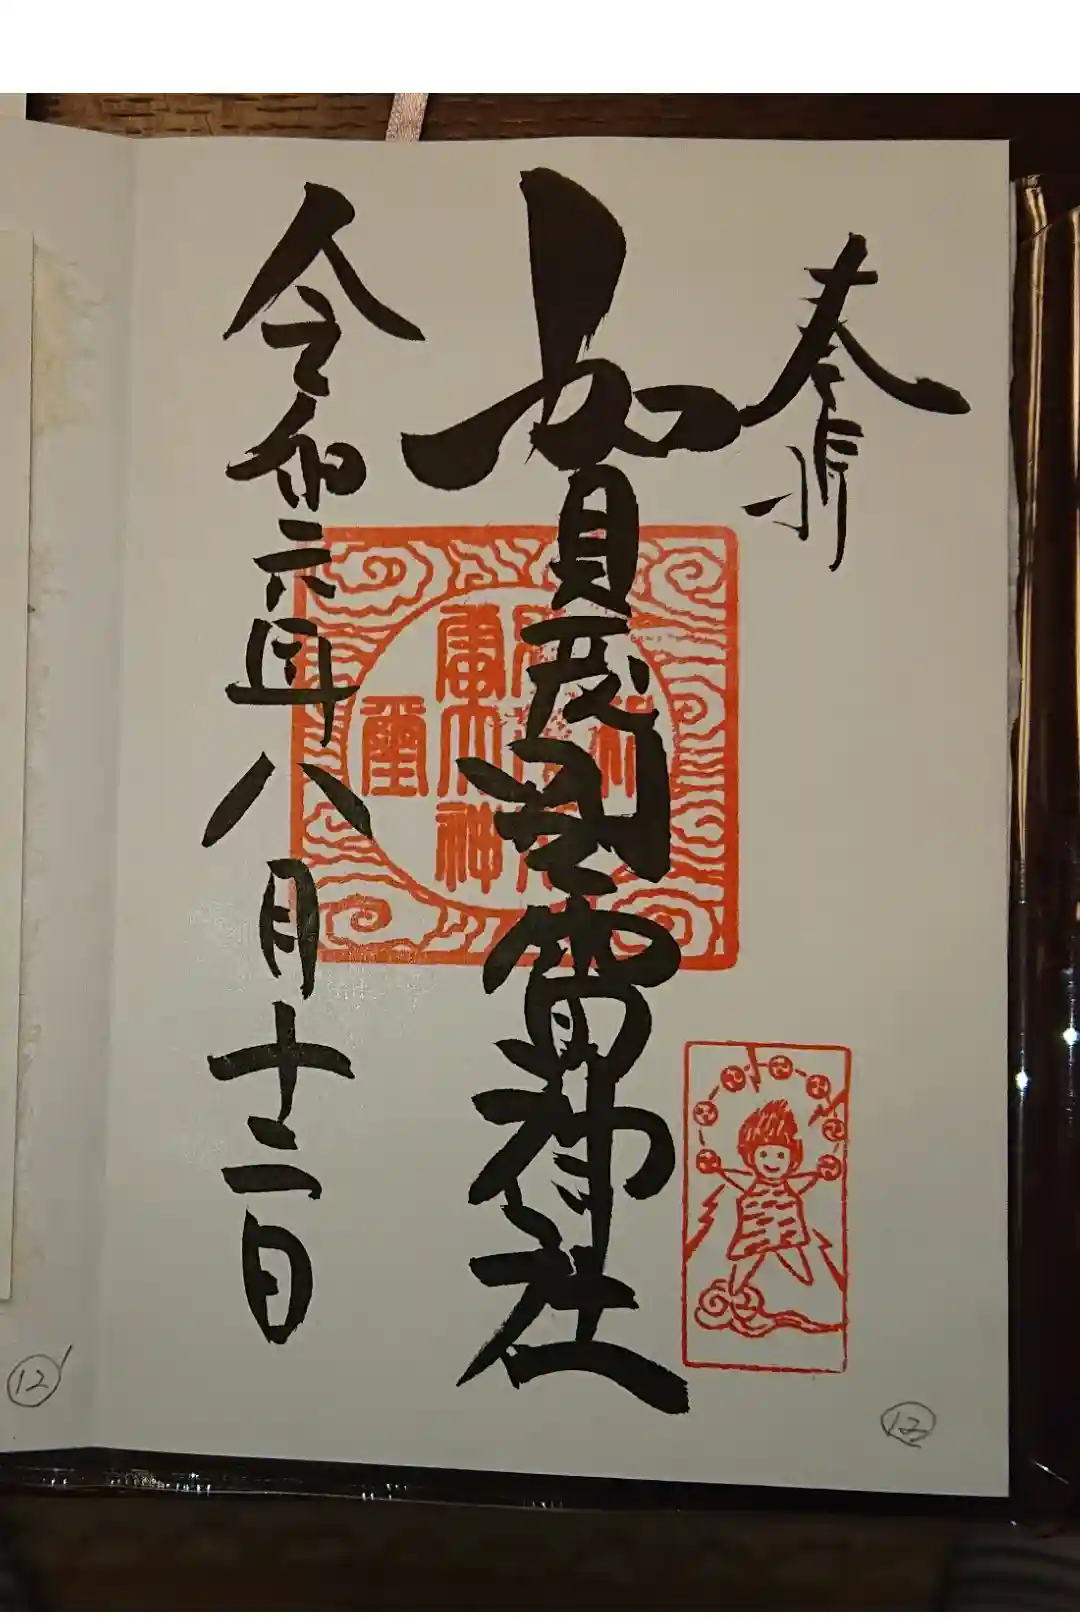 奉拝
加茂別雷神社
令和六年八月十二日
雷大神
璽
12
12